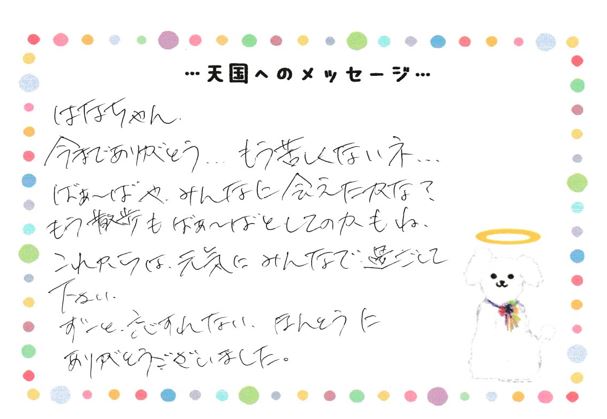 …天国へのメッセージ…
はなちゃん.
今までありがとう… もう苦しくないネ…
ばぁ〜ばや、みんなに会えたかな？
もう散歩もばぁ〜ばとしてるのかもね、
これからは、元気にみんなで過ごして
下さい.
ずーと、忘すれない、ほんとうに
ありがとうございました。